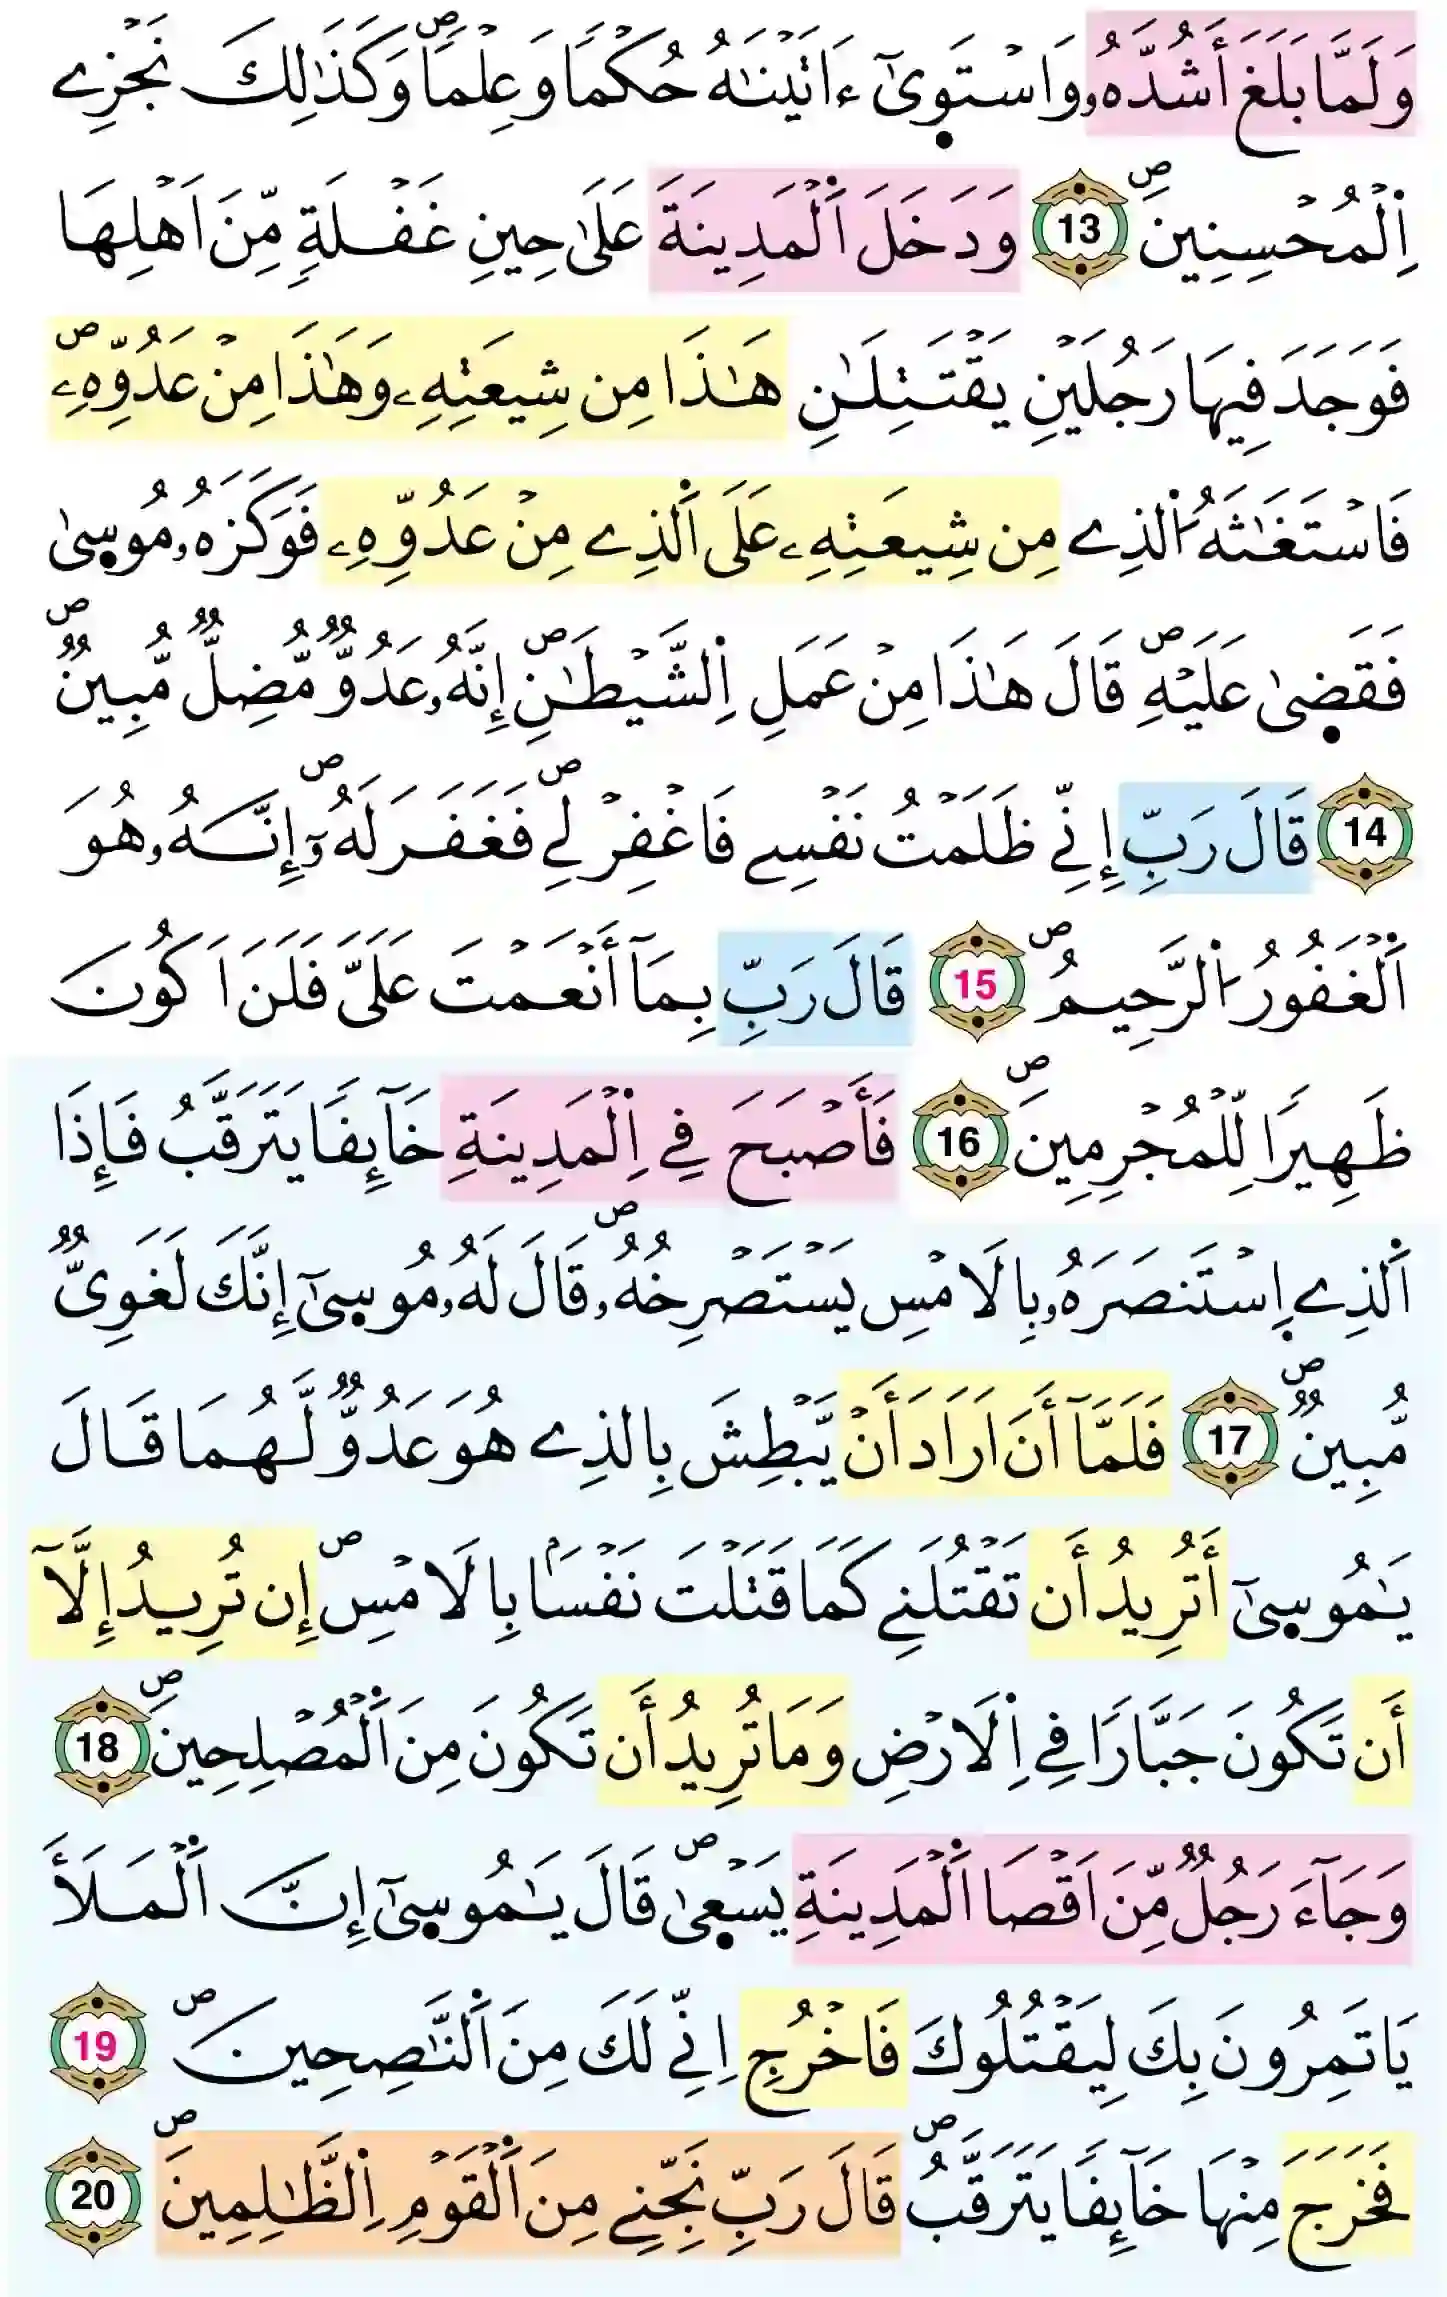 وَلَمَّا بَلَغَ أَشُدَّهُۥ وَاسْتَوٜىٰٓ ءَاتَيْنَٰهُ حُكْمًا وَعِلْمًاۖ وَكَذَٰلِكَ نَجْزِے
اِ۬لْمُحْسِنِينَۖ 13 وَدَخَلَ اَ۬لْمَدِينَةَ عَلَىٰ حِينِ غَفْلَةٍ مِّنَ اَهْلِهَا
فَوَجَدَ فِيهَا رَجُلَيْنِ يَقْتَتِلَٰنِ هَٰذَا مِن شِيعَتِهِۦ وَهَٰذَا مِنْ عَدُوِّهِۦۖ
فَاسْتَغَٰثَهُ اُ۬لذِے مِن شِيعَتِهِۦ عَلَى اَ۬لذِے مِنْ عَدُوِّهِۦ فَوَكَزَهُۥ مُوسٜىٰ
فَقَضٜىٰ عَلَيْهِۖ قَالَ هَٰذَا مِنْ عَمَلِ اِ۬لشَّيْطَٰنِۖ إِنَّهُۥ عَدُوٌّ مُّضِلٌّ مُّبِينٌۖ
14 قَالَ رَبِّ إِنِّے ظَلَمْتُ نَفْسِے فَاغْفِرْ لِےۖ فَغَفَرَ لَهُۥٓۖ إِنَّهُۥ هُوَ
اَ۬لْغَفُورُ اُ۬لرَّحِيمُۖ 15 قَالَ رَبِّ بِمَآ أَنْعَمْتَ عَلَيَّ فَلَنَ اَكُونَ
ظَهِيرًا لِّلْمُجْرِمِينَۖ 16 فَأَصْبَحَ فِے اِ۬لْمَدِينَةِ خَآئِفًا يَتَرَقَّبُ فَإِذَا
اَ۬لذِے اِ۪سْتَنصَرَهُۥ بِالَامْسِ يَسْتَصْرِخُهُۥۖ قَالَ لَهُۥ مُوسٜىٰٓ إِنَّكَ لَغَوِيٌّ
مُّبِينٌۖ 17 فَلَمَّآ أَنَ اَرَادَ أَنْ يَّبْطِشَ بِالذِے هُوَ عَدُوٌّ لَّهُمَا قَالَ
يَٰمُوسٜىٰٓ أَتُرِيدُ أَن تَقْتُلَنِے كَمَا قَتَلْتَ نَفْسَۢا بِالَامْسِۖ إِن تُرِيدُ إِلَّآ
أَن تَكُونَ جَبَّارًا فِے اِ۬لَارْضِ وَمَا تُرِيدُ أَن تَكُونَ مِنَ اَ۬لْمُصْلِحِينَۖ 18
وَجَآءَ رَجُلٌ مِّنَ اَقْصَا اَ۬لْمَدِينَةِ يَسْعٜىٰۖ قَالَ يَٰمُوسٜىٰٓ إِنَّ اَ۬لْمَلَأَ
يَاتَمِرُونَ بِكَ لِيَقْتُلُوكَ فَاخْرُجِ اِنِّے لَكَ مِنَ اَ۬لنَّٰصِحِينَۖ 19
فَخَرَجَ مِنْهَا خَآئِفًا يَتَرَقَّبُۖ قَالَ رَبِّ نَجِّنِے مِنَ اَ۬لْقَوْمِ اِ۬لظَّٰلِمِينَۖ 20